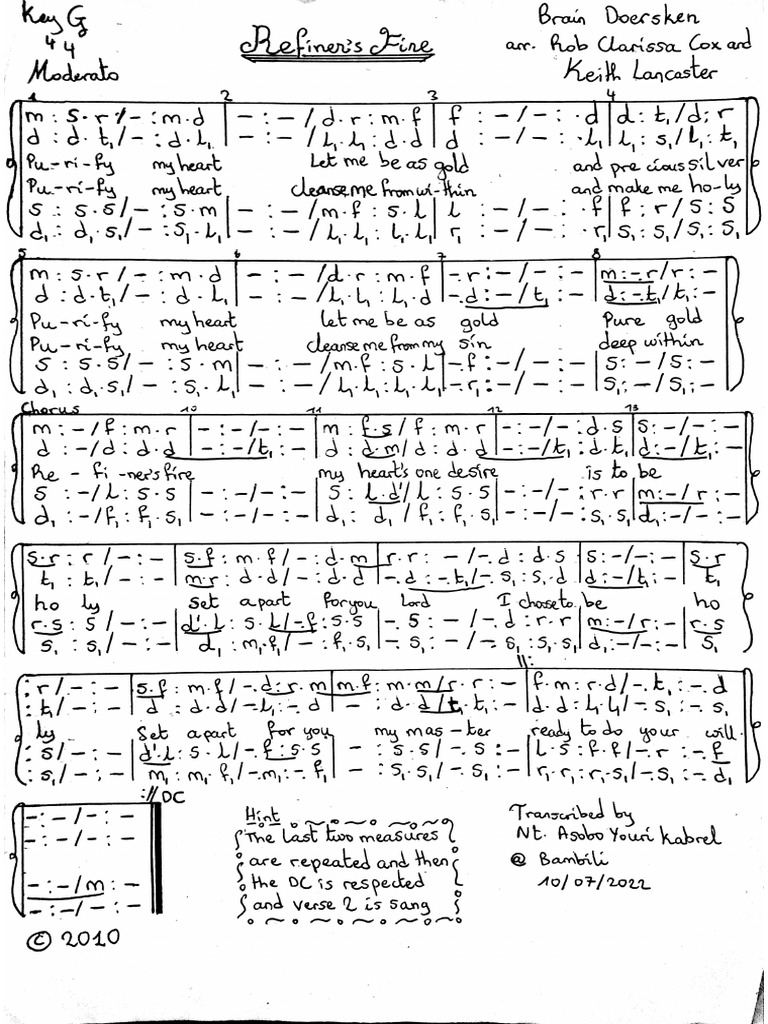 Key G
4 4
Moderato
Refiner's Fire
Brain Doersken
arr. Rob Clarissa Cox and
Keith Lancaster
1 2 3 4
m : s · r / - : m · d | - : - / d · r : m · f | f : - / - : · d | d : t₁ / d : r
d : d · t₁ / - : d · l₁ | - : - / l₁ · l₁ : d · d | d : - / - : · l₁ | l₁ : s₁ / l₁ : t₁
Pu-ri-fy my heart Let me be as gold and pre cious sil ver
Pu-ri-fy my heart cleanse me from wi-thin and make me ho-ly
s : s · s / - : s · m | - : - / m · f : s · l | l : - / - : · f | f : r / s : s
d₁ : d₁ · s₁ / - : s₁ · l₁ | - : - / l₁ · l₁ : l₁ · l₁ | r₁ : - / - : · r₁ | s₁ : s₁ / s₁ : s₁
5 6 7 8
m : s · r / - : m · d | - : - / d · r : m · f | - · r : - / - : - | m : - · r / r : -
d : d · t₁ / - : d · l₁ | - : - / l₁ · l₁ : l₁ · d | - · d : - / t₁ : - | d : - · t₁ / t₁ : -
Pu-ri-fy my heart let me be as gold Pure gold
Pu-ri-fy my heart cleanse me from my sin deep within
s : s · s / - : s · m | - : - / m · f : s · l | - · f : - / - : - | s : - / s : -
d₁ : d₁ · s₁ / - : s₁ · l₁ | - : - / l₁ · l₁ : l₁ · l₁ | - · r₁ : - / - : - | s₁ : - / s₁ : -
Chorus 10 11 12 13
m : - / f : m · r | - : - / - : - | m : f · s / f : m · r | - : - / - : d · s | s : - / - : -
d : - / d : d · d | - : - / t₁ : - | d : d · m / d : d · d | - : - / t₁ : d · t₁ | d : - / t₁ : -
Re - fi -ner's fire my heart's one desire is to be
s : - / l : s · s | - : - / - : - | s : l · d' / l : s · s | - : - / - : r · r | m : - / r : -
d₁ : - / f₁ : f₁ · s₁ | - : - / - : - | d₁ : d₁ / f₁ : f₁ · s₁ | - : - / - : s₁ · s₁ | d₁ : - / - : -
s · r : r / - : - | s · f : m · f / - : d · m | r · r : - / - · d : d · s | s : - / - : - | s · r
t₁ : t₁ / - : - | m · r : d · d / - : d · d | - · d : - · t₁ / - · s₁ : s₁ · d | d : - / t₁ : - | t₁
ho ly set apart for you Lord I chose to be ho
r · s : s / - : - | d' · l : s · l / - · f : s · s | - · s : - / - · d : r · r | m : - / r : - | r · s
s₁ : s₁ / - : - | d₁ : m₁ · f₁ / - : f₁ · s₁ | - · s₁ : - / - · s₁ : s₁ · s₁ | d₁ : - / - : - | s₁
//:
: r / - : - | s · f : m · f / - · d : r · m | m · f : m · m / r · r : - | f · m : r · d / - · t₁ : - · d
: t₁ / - : - | d : d · d / - · l₁ : - · d | - : d · d / t₁ · t₁ : - | d · d : l₁ · l₁ / - · s₁ : - · s₁
ly Set apart for you my mas-ter ready to do your will.
: s / - : - | d' · l : s · l / - · f : s · s | - : s · s / - · s : - | l · s : f · f / - · r : - · f
: s₁ / - : - | m₁ : m₁ · f₁ / - · m₁ : - · f₁ | - : s₁ · s₁ / - · s₁ : - | r₁ · r₁ : r₁ · s₁ / - · s₁ : - · d₁
:// DC
- : - / - : -
- : - / - : -
- : - / m : -
- : - / - : -
© 2010
Hint
The last two measures
are repeated and then
the DC is respected
and verse 2 is sang
Transcribed by
Nt. Asobo Youri Kabrel
@ Bambili
10/07/2022